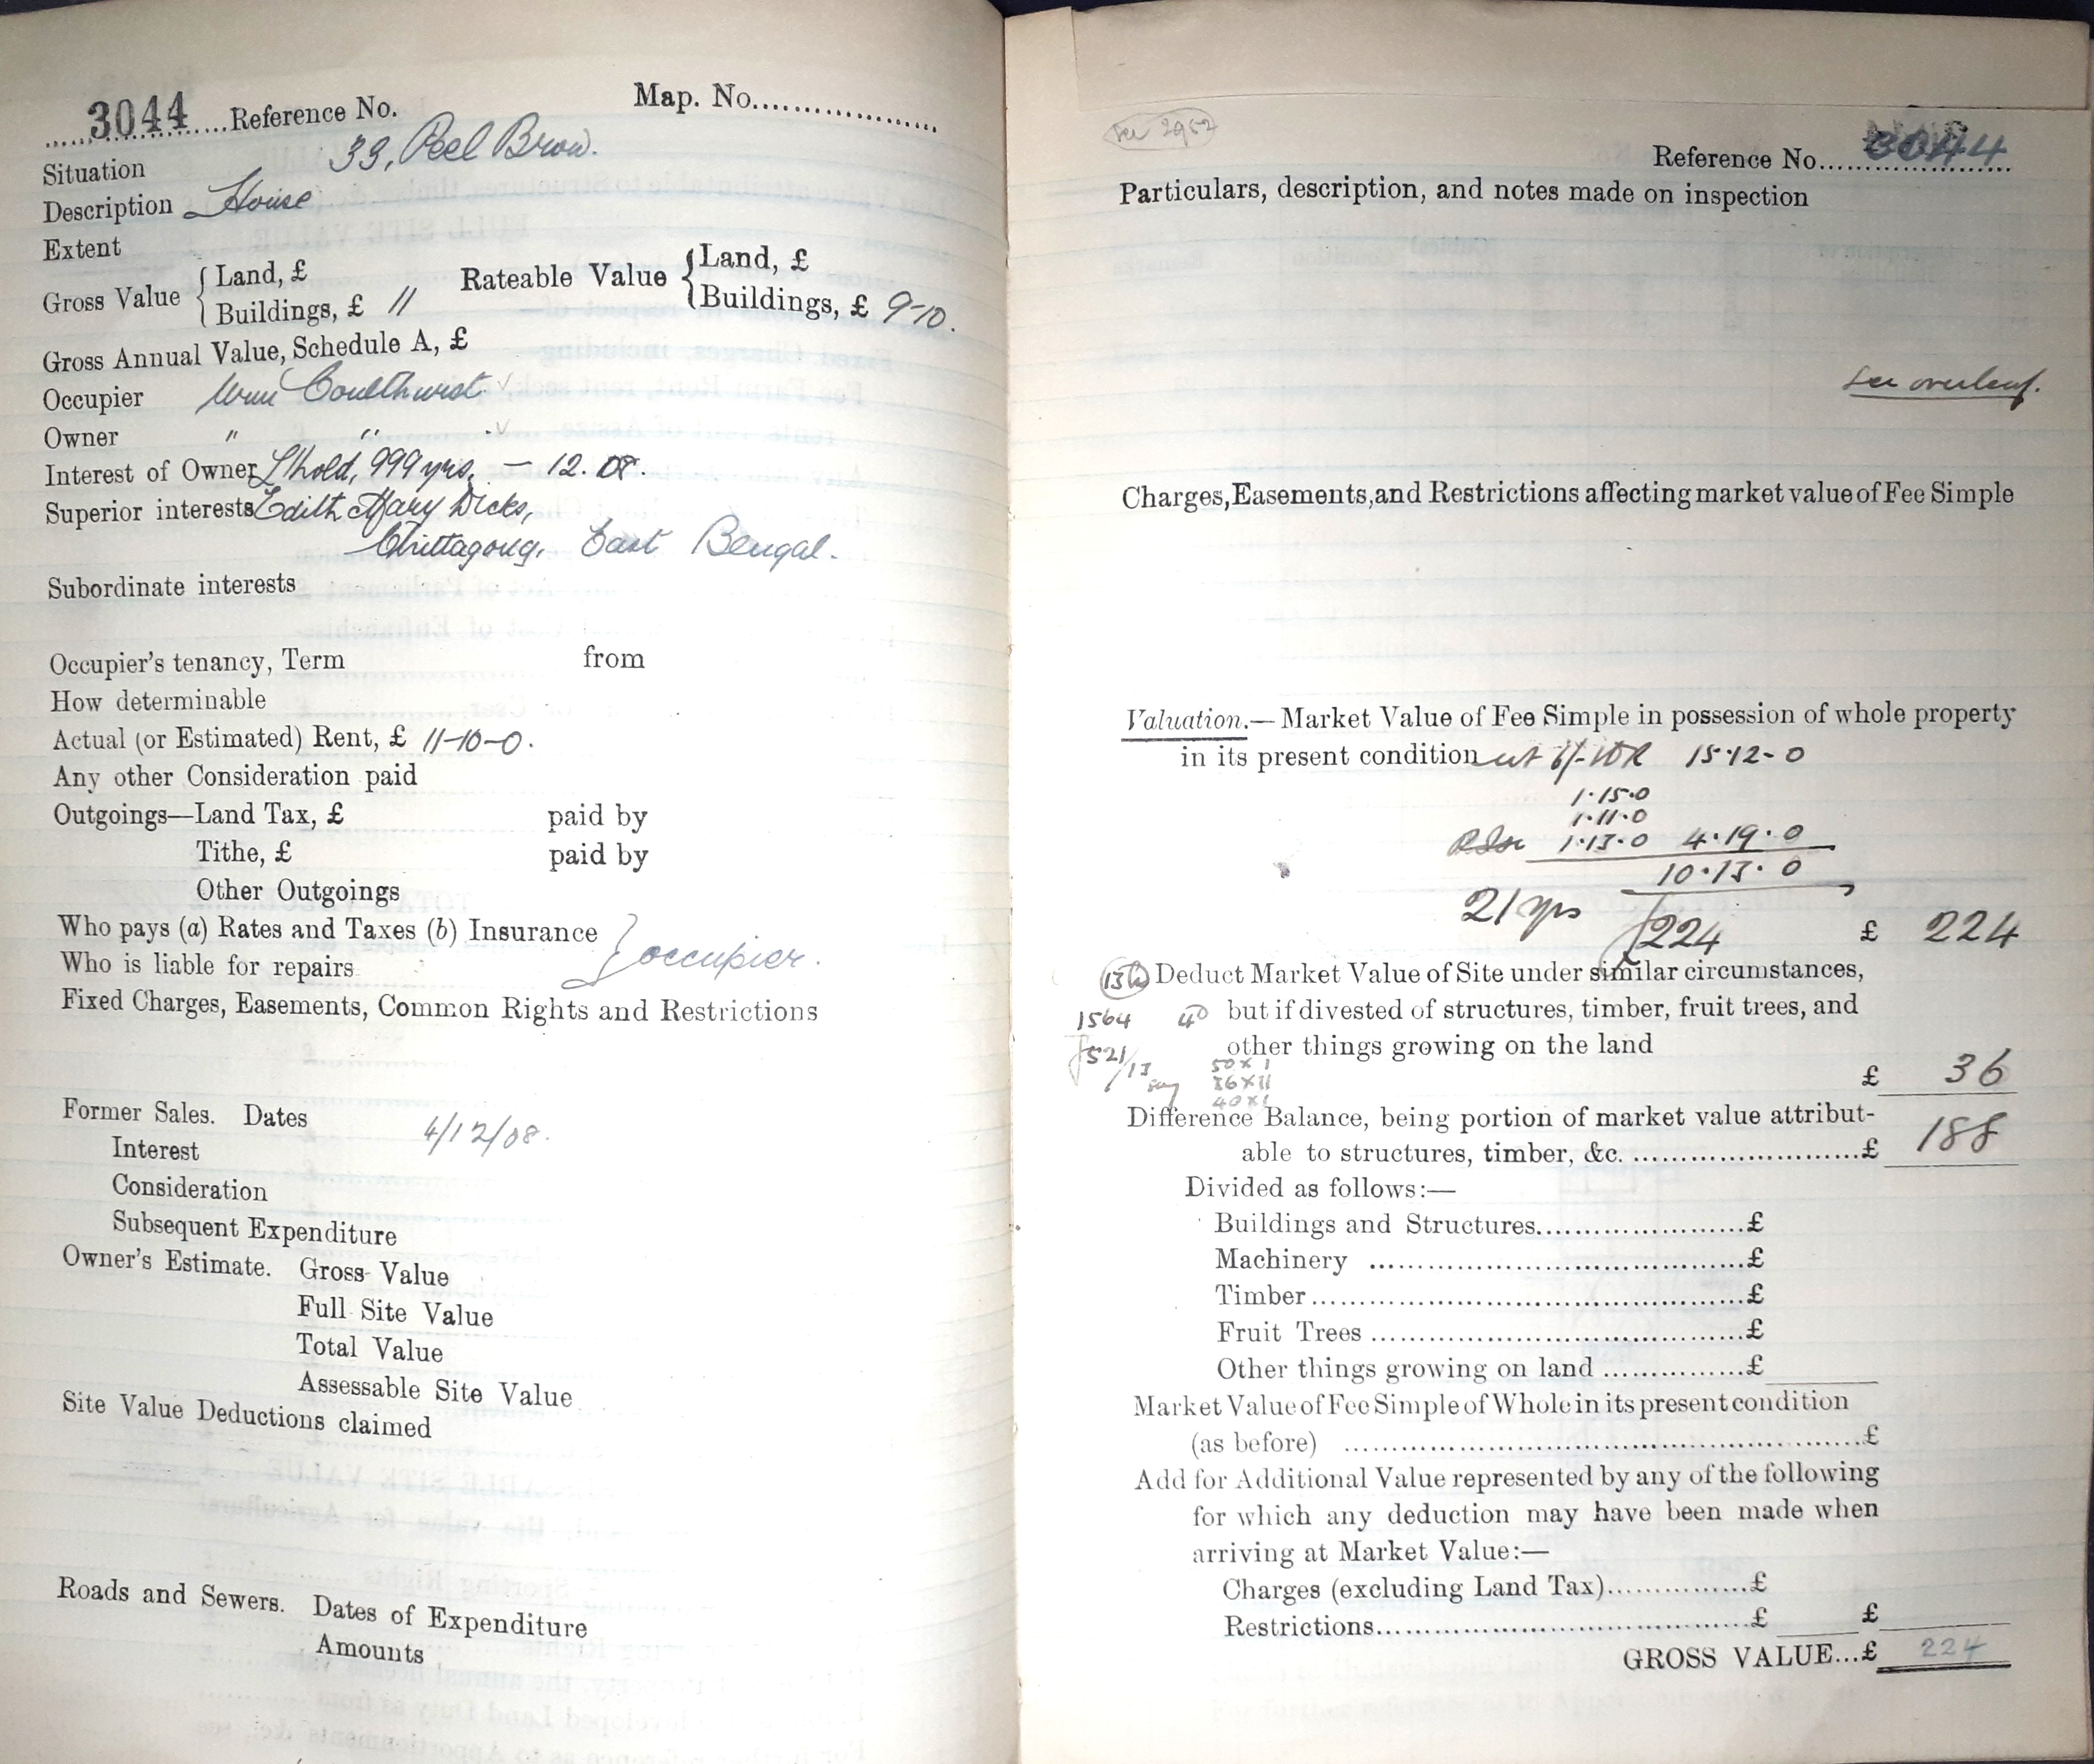 3044 Reference No. Map. No.
Situation 33, Peel Brow.
Description House
Extent
Gross Value { Land, £ Rateable Value { Land, £
Buildings, £ 11 Buildings, £ 9-10.
Gross Annual Value, Schedule A, £
Occupier Wm Coulthurst ✓
Owner " " ✓
Interest of Owner L'hold, 999 yrs. — 12. 08.
Superior interests Edith Mary Dicks,
Chittagong, East Bengal.
Subordinate interests
Occupier's tenancy, Term from
How determinable
Actual (or Estimated) Rent, £ 11-10-0.
Any other Consideration paid
Outgoings—Land Tax, £ paid by
Tithe, £ paid by
Other Outgoings
Who pays (a) Rates and Taxes (b) Insurance
Who is liable for repairs } occupier.
Fixed Charges, Easements, Common Rights and Restrictions
Former Sales. Dates 4/12/08.
Interest
Consideration
Subsequent Expenditure
Owner's Estimate. Gross Value
Full Site Value
Total Value
Assessable Site Value
Site Value Deductions claimed
Roads and Sewers. Dates of Expenditure
Amounts
See 2952
Reference No. 3044
Particulars, description, and notes made on inspection
See overleaf.
Charges, Easements, and Restrictions affecting market value of Fee Simple
Valuation.—Market Value of Fee Simple in possession of whole property
in its present condition at 6/- 15·12-0
1·15·0
1·11·0
1·13·0 4·19·0
10·13·0
21 yrs £224 £ 224
Deduct Market Value of Site under similar circumstances,
1564 40 but if divested of structures, timber, fruit trees, and
521/13 other things growing on the land
say 50 x 1
36 x 11
40 x 1
£ 36
Difference Balance, being portion of market value attribut-
able to structures, timber, &c. £ 188
Divided as follows:—
Buildings and Structures £
Machinery £
Timber £
Fruit Trees £
Other things growing on land £
Market Value of Fee Simple of Whole in its present condition
(as before) £
Add for Additional Value represented by any of the following
for which any deduction may have been made when
arriving at Market Value:—
Charges (excluding Land Tax) £
Restrictions £ £
GROSS VALUE...£ 224